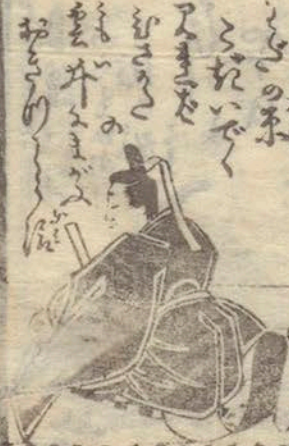 わだの原
こぎいでて
みれば
ひさかた
の
雲井にまがふ
おきつしら
浪